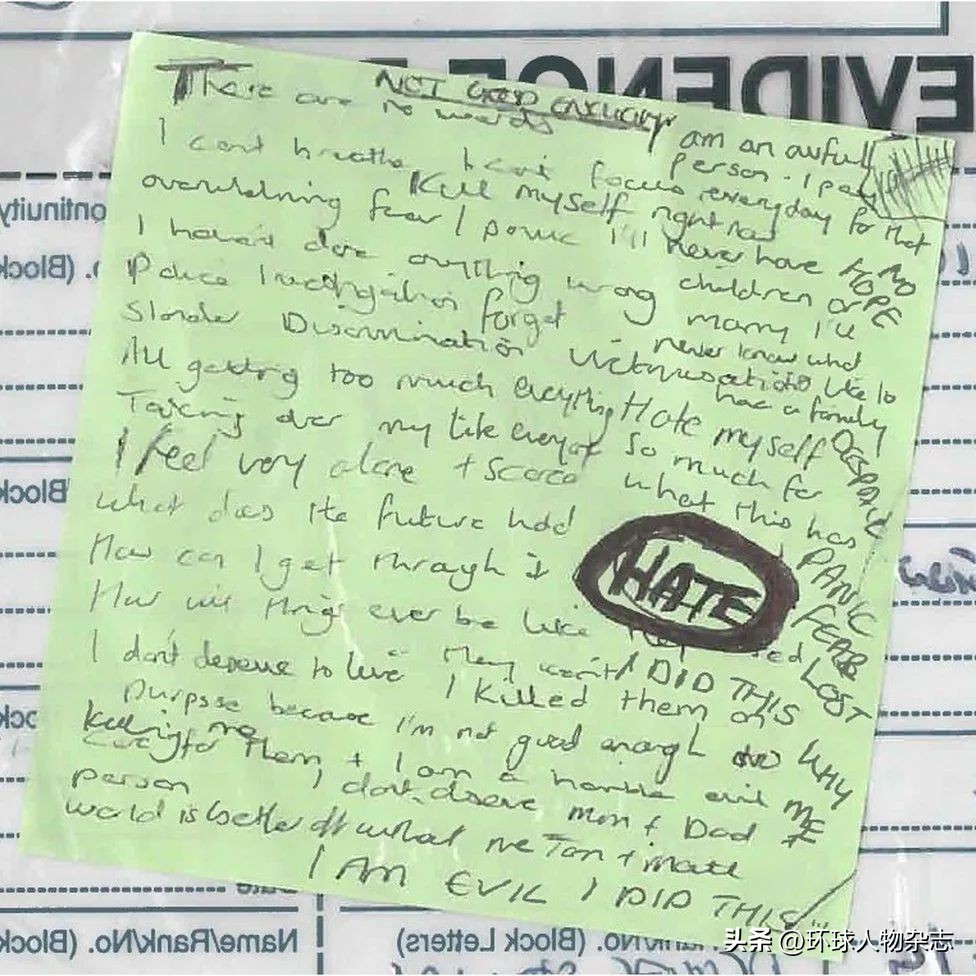 EVIDENCE
NOT GOOD ENOUGH
There are no words
I am an awful person. I pay
everyday for that
I can't breathe I can't focus
Kill myself right now
overwhelming fear I panic I'll never have
children or marry I'll
never know what
like to
have a family
NO HOPE
I haven't done anything wrong
Police investigation forget
Slander Discrimination Victimisation
All getting too much everything
Hate myself
so much for
what this has
DESPAIR
PANIC
FEAR
LOST
Taking over my life
I feel very alone + scared
what does the future hold
How can I get through it
HATE
How will things ever be like they
I DID THIS
I don't deserve to live I killed them on
purpose because I'm not good enough
WHY ME
Killing me
care for them + I am a horrible evil
person I don't deserve mum + Dad
world is better off without me Tom + Matt
I AM EVIL I DID THIS
Continuity
No. (Block
(Block
Name/Rank/No. (Block
Rank/No. (Block Letters)
头条 @环球人物杂志